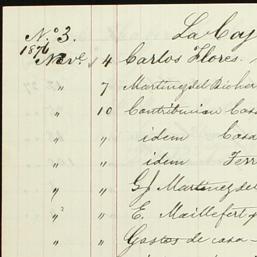 No. 3. La Caj
1876
Nove. 4 Carlos Flores.
" 7 Martinez del Rio her
" 10 Contribucion Casa
" " idem Casa
" " idem Ferr
" " G. Martinez del
" " E. Maillefert y
" " Gastos de casa -